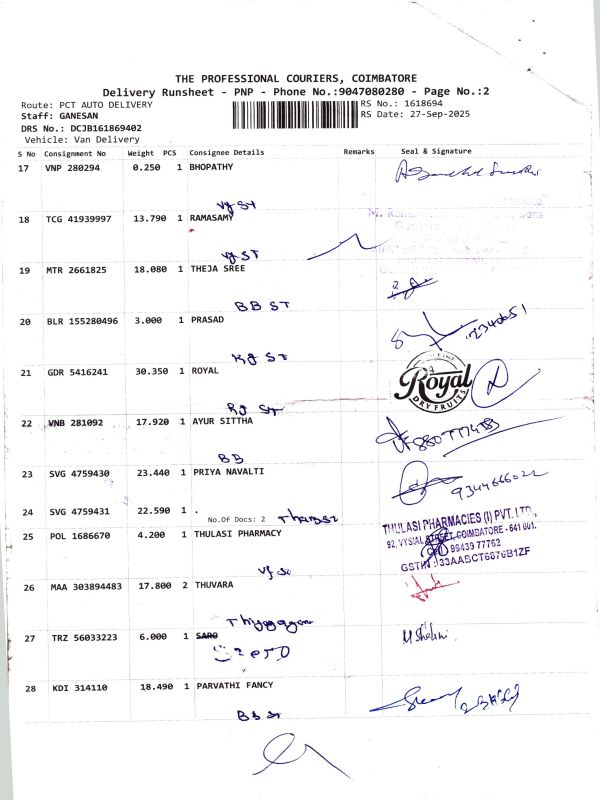 THE PROFESSIONAL COURIERS, COIMBATORE
Delivery Runsheet - PNP - Phone No.:9047080280 - Page No.:2
Route: PCT AUTO DELIVERY
RS No.: 1618694
Staff: GANESAN
RS Date: 27-Sep-2025
DRS No.: DCJB161869402
Vehicle: Van Delivery
S No Consignment No Weight PCS Consignee Details Remarks Seal & Signature
17 VNP 280294 0.250 1 BHOPATHY
Vy St
18 TCG 41939997 13.790 1 RAMASAMY
Vy ST
19 MTR 2661825 18.080 1 THEJA SREE
BB ST
20 BLR 155280496 3.000 1 PRASAD
Rg ST
21 GDR 5416241 30.350 1 ROYAL
Royal
DRY FRUITS
Rg St
22 VNB 281092 17.920 1 AYUR SITTHA
BB
23 SVG 4759430 23.440 1 PRIYA NAVALTI
9344666022
24 SVG 4759431 22.590 1 .
No.Of Docs: 2
25 POL 1686670 4.200 1 THULASI PHARMACY
THULASI PHARMACIES (I) PVT. LTD.,
92, VYSIAL STREET, COIMBATORE - 641 001.
99439 77762
GSTIN : 33AABCT6876B1ZF
26 MAA 303894483 17.800 2 THUVARA
27 TRZ 56033223 6.000 1 SARO
M Shalini
28 KDI 314110 18.490 1 PARVATHI FANCY
BB St